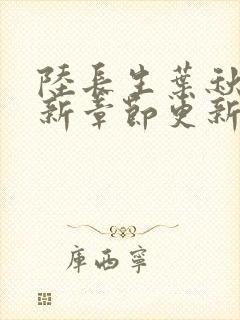 陸長生葉秋
新章節更新
库西寧